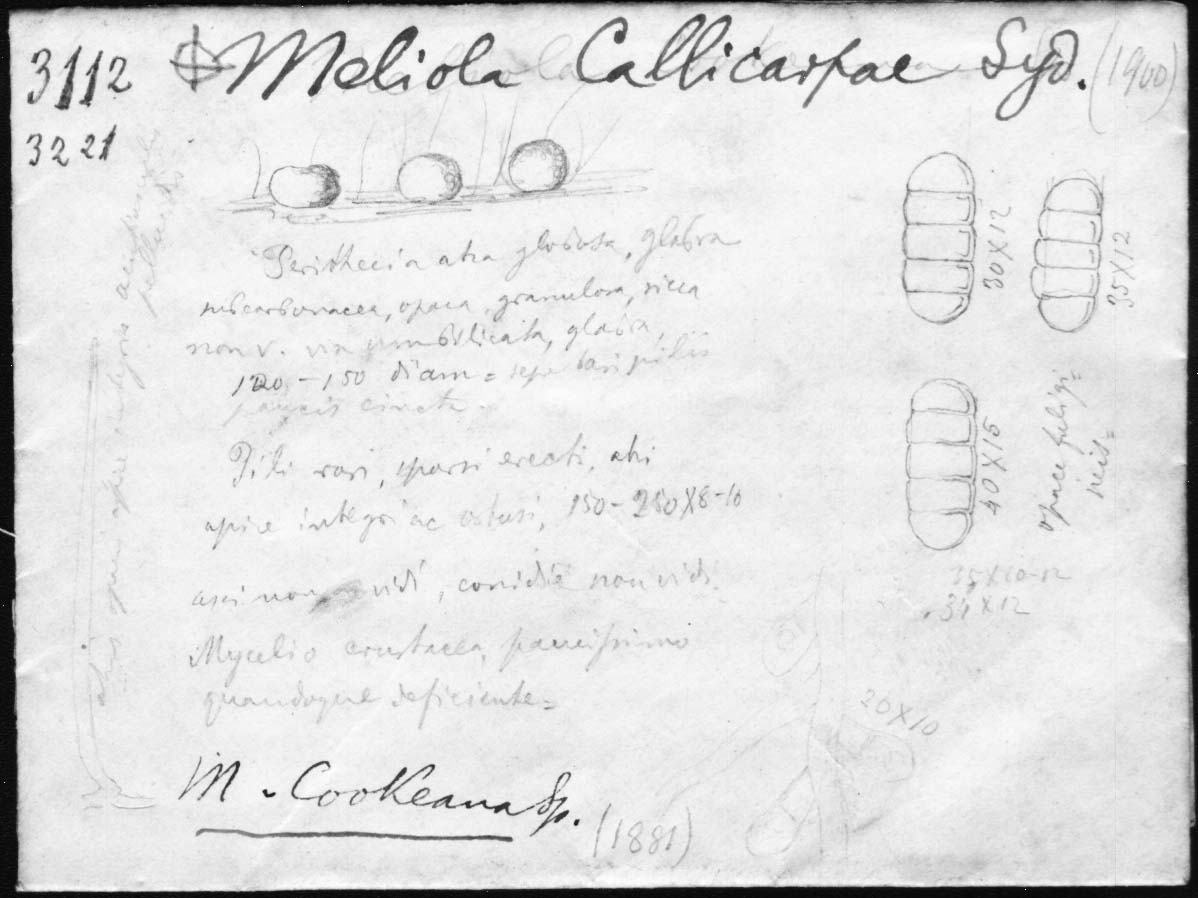 3112 Meliola Callicarpae Syd. (1900)
3221
Perithecia atra globosa, glabra
subcarbonacea, opaca, granulosa, sicca
non v. vix umbilicata, glabra,
120-150 diam = sepe basi pilis
paucis cincta.
Pili rari, sparsi erecti, atri
apice integri ac obtusi, 150-250X8-10
asci non vidi, conidia non vidi.
Mycelio crustacea, paucissimo
quandoque deficiente=
M. Cookeana Sp. (1881)
30X12
35X12
40X15
opace fuligi=
neis=
35X10-12
34X12
20X10
apice integris